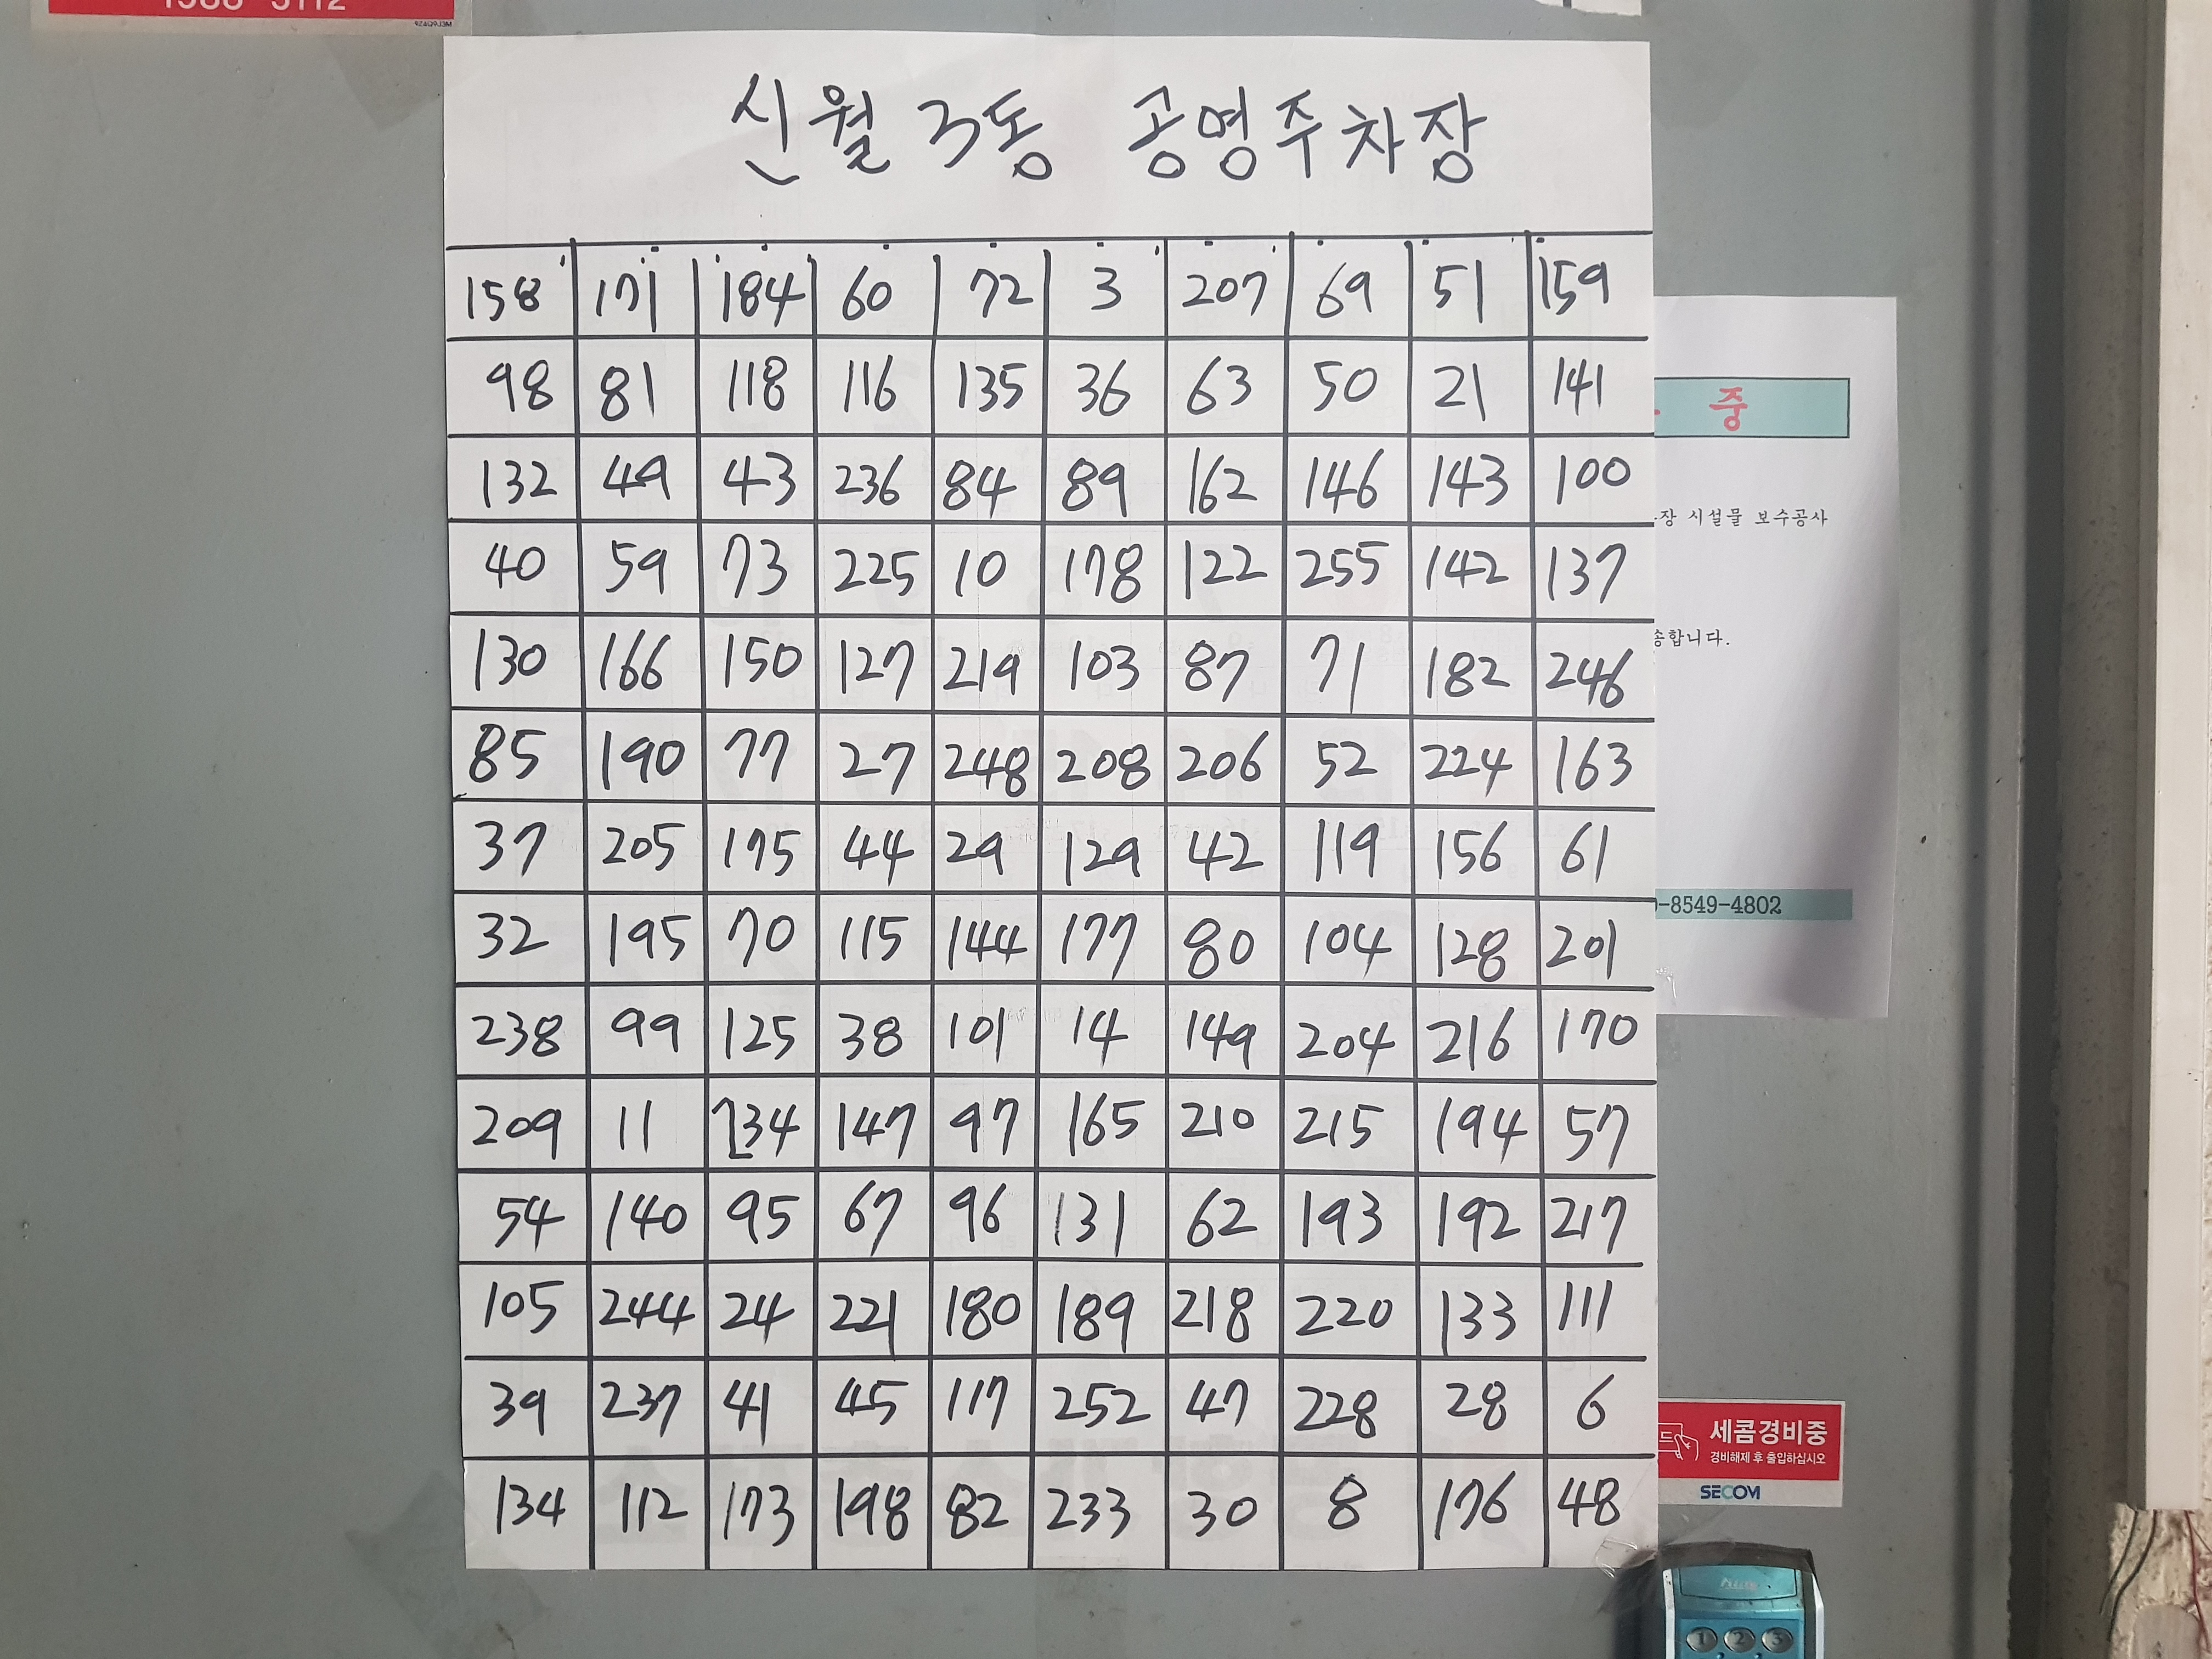 신월3동 공영주차장
158 171 184 60 72 3 207 69 51 159
98 81 118 116 135 36 63 50 21 141
132 49 43 236 84 89 162 146 143 100
40 59 73 225 10 178 122 255 142 137
130 166 150 127 219 103 87 71 182 246
85 190 77 27 248 208 206 52 224 163
37 205 175 44 29 129 42 119 156 61
32 195 70 115 144 177 80 104 128 201
238 99 125 38 101 14 149 204 216 170
209 11 234 147 97 165 210 215 194 57
54 140 95 67 96 131 62 193 192 217
105 244 24 221 180 189 218 220 133 111
39 237 41 45 117 252 47 228 28 6
134 112 173 198 82 233 30 8 176 48
중
장 시설물 보수공사
송합니다.
-8549-4802
드
세콤경비중
경비해제 후 출입하십시오
SECOM
1 2 3